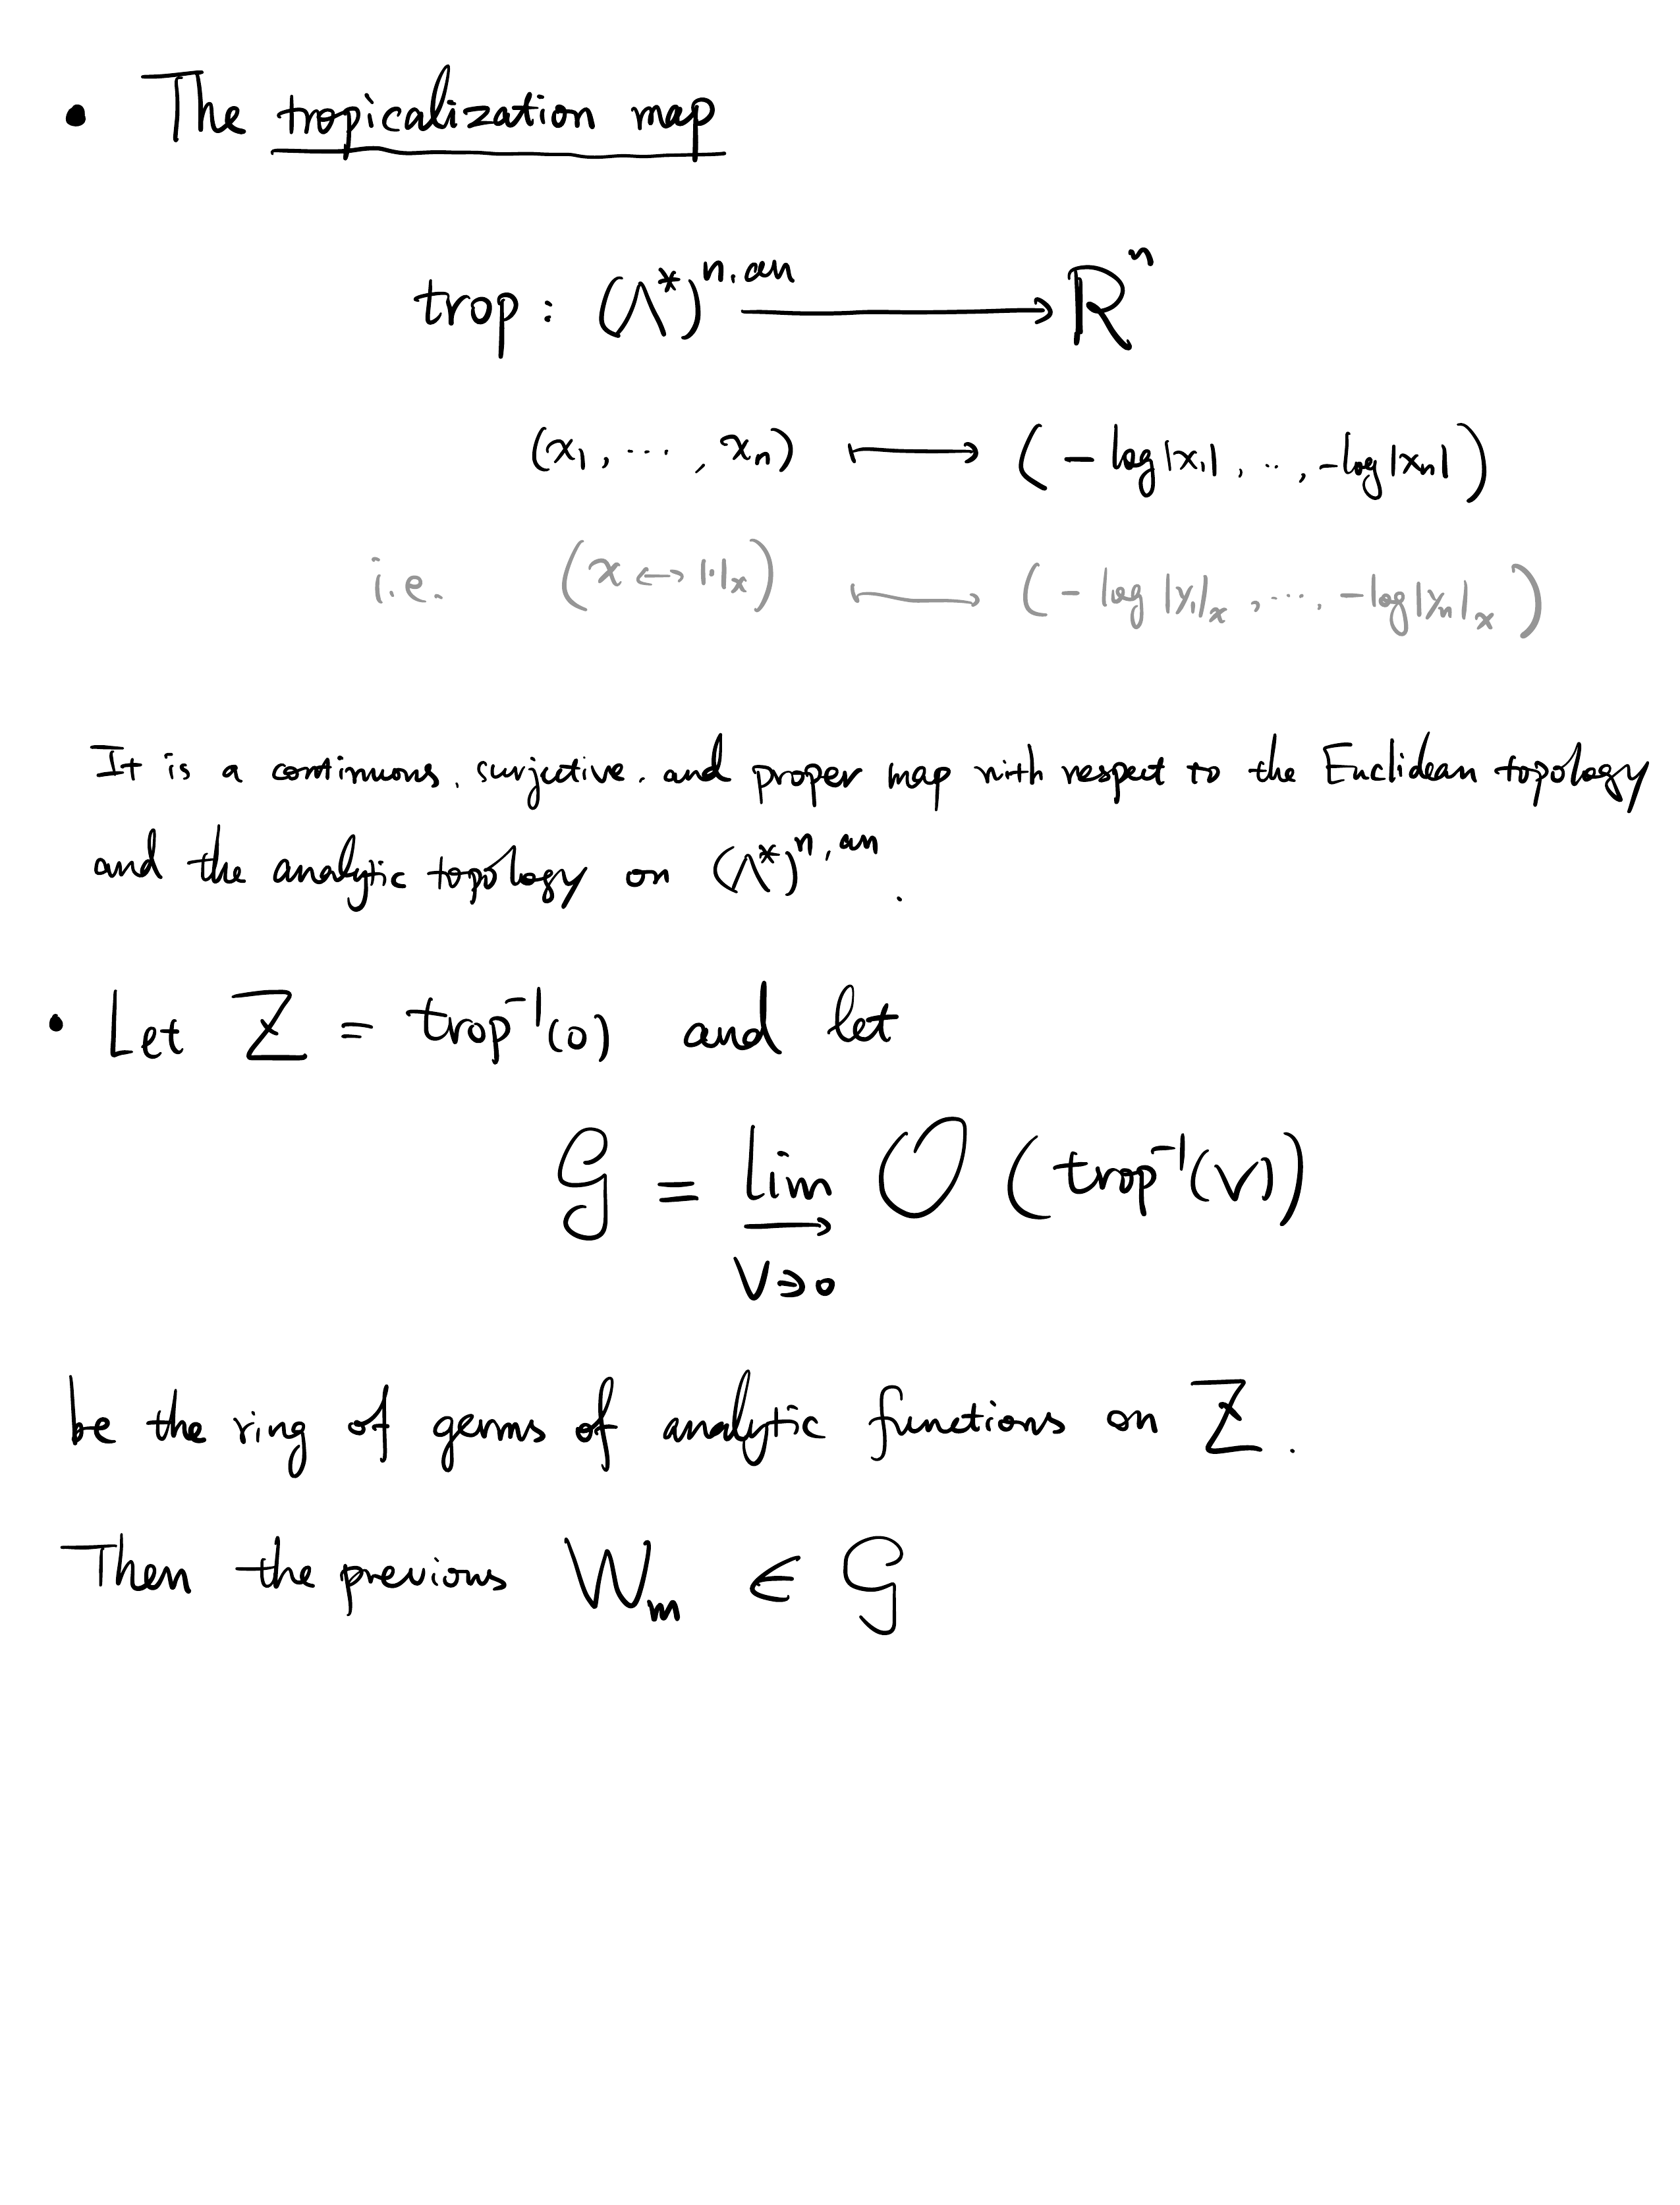 • The tropicalization map
trop : (Λ*)^{n,an} ⟶ ℝ^n
(x₁, ⋯, xₙ) ⟼ (-log|x₁|, ⋯, -log|xₙ|)
i.e. (x ↔ |·|ₓ) ⟼ (-log|y₁|ₓ, ⋯, -log|yₙ|ₓ)
It is a continuous, surjective, and proper map with respect to the Euclidean topology
and the analytic topology on (Λ*)^{n,an}.
• Let Z = trop⁻¹(0) and let
𝒢 = lim O (trop⁻¹(V))
⟶
V∋0
be the ring of germs of analytic functions on Z.
Then the previous Wₘ ∈ 𝒢